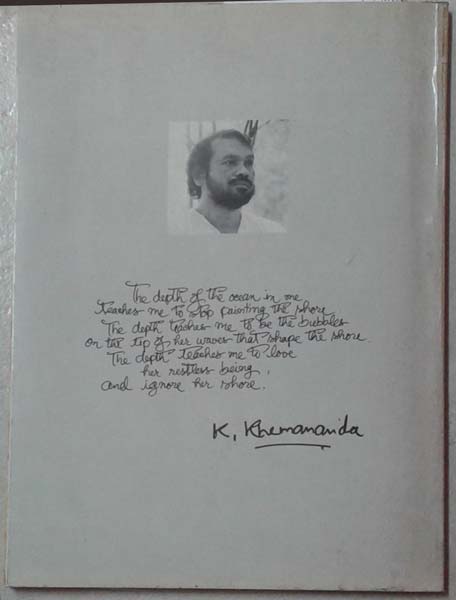 The depth of the ocean in me
teaches me to stop painting the shore
The depth teaches me to be the bubbles
on the tip of her waves that shape the shore.
The depth teaches me to love
her restless being,
and ignore her shore.
K. Khemananda